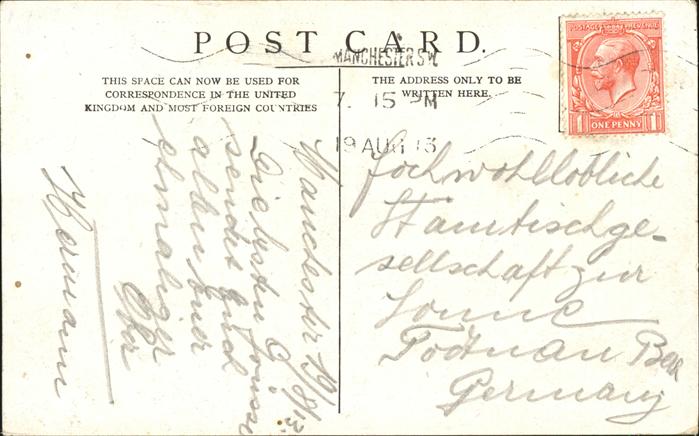 POST CARD.
THIS SPACE CAN NOW BE USED FOR
CORRESPONDENCE IN THE UNITED
KINGDOM AND MOST FOREIGN COUNTRIES
THE ADDRESS ONLY TO BE
WRITTEN HERE.
MANCHESTER S.W.
7. 15 PM
19 AUG 13
POSTAGE REVENUE
1 ONE PENNY 1
Manchester 19/8/13.
Die besten Grüsse
sendet Euch
allen Euer
ehmaliger
Hermann
Hochwohllöbliche
Stamtischge-
sellschaft zur
Sonne
Todtnau
Germany